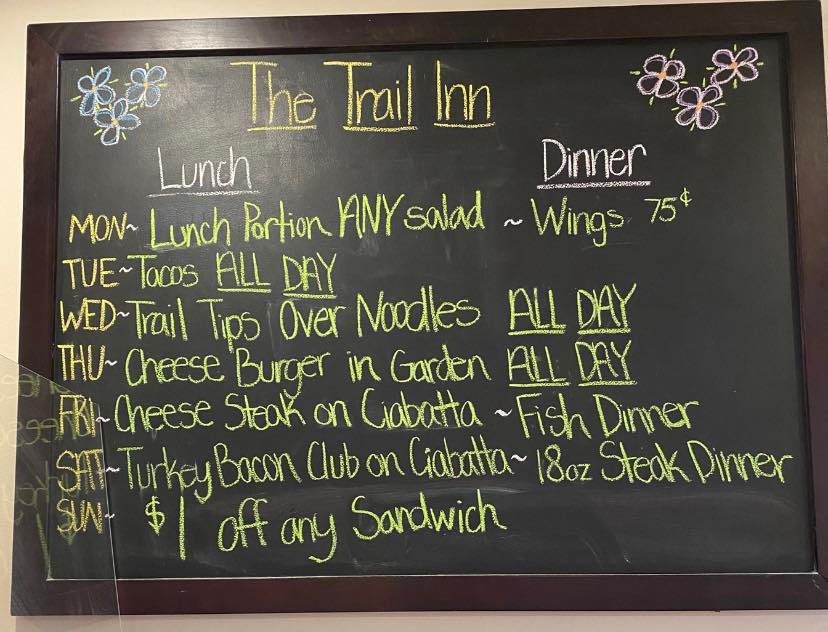 The Trail Inn
Lunch Dinner
MON~ Lunch Portion ANY salad ~ Wings 75¢
TUE~ Tacos ALL DAY
WED~ Trail Tips Over Noodles ALL DAY
THU~ Cheese Burger in Garden ALL DAY
FRI~ Cheese Steak on Ciabatta ~ Fish Dinner
SAT~ Turkey Bacon Club on Ciabatta ~ 18oz Steak Dinner
SUN~ $1 off any Sandwich